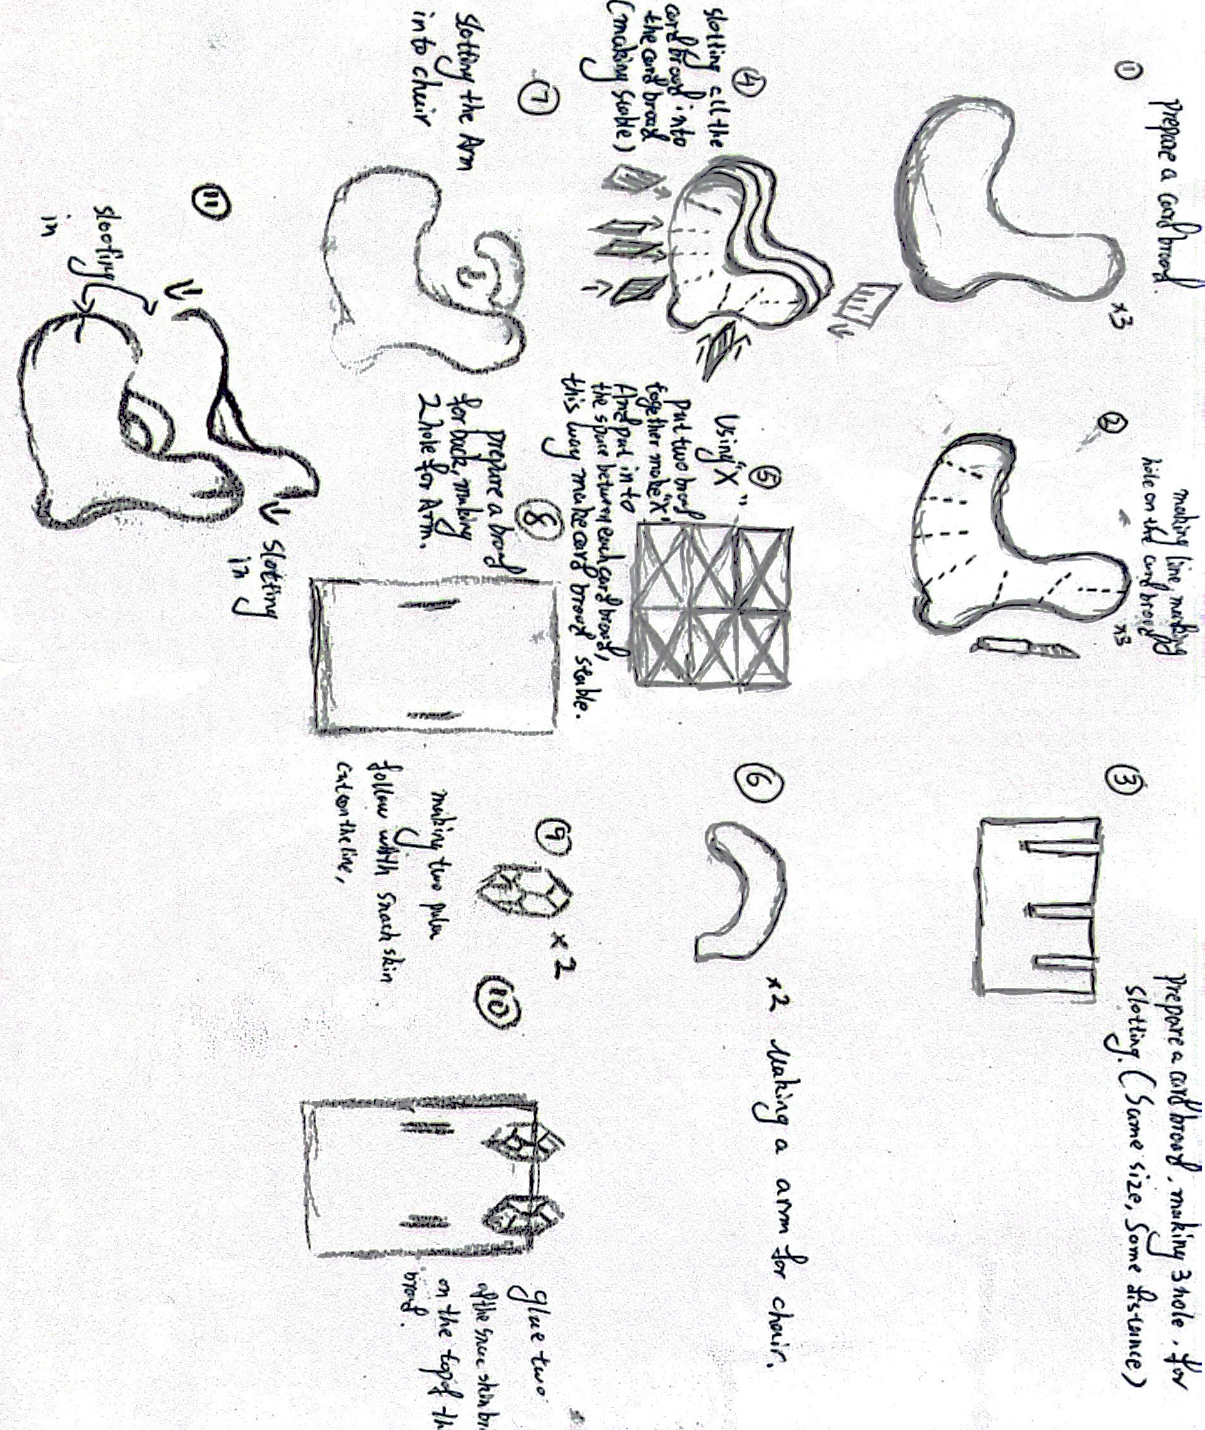 ①
prepare a card broad.
x3
②
making line making
hole on the card broad
x3
③
prepare a card broad, making 3 hole. for
slotting. (Same size, Same distance)
④
slotting all the
card broad into
the card broad
(making stable)
⑤
Using "X"
put two broad
together make "X",
And put in to
the space between each card broad,
this way make card broad stable.
⑥
x2 Making a arm for chair.
⑦
Slotting the Arm
into chair
⑧
prepare a broad
for back, making
2 hole for Arm.
⑨
x2
making two
follow with snack skin
cut on the line,
⑩
glue two
of the skin
on the top of
broad.
⑪
slotting
in
slotting
in